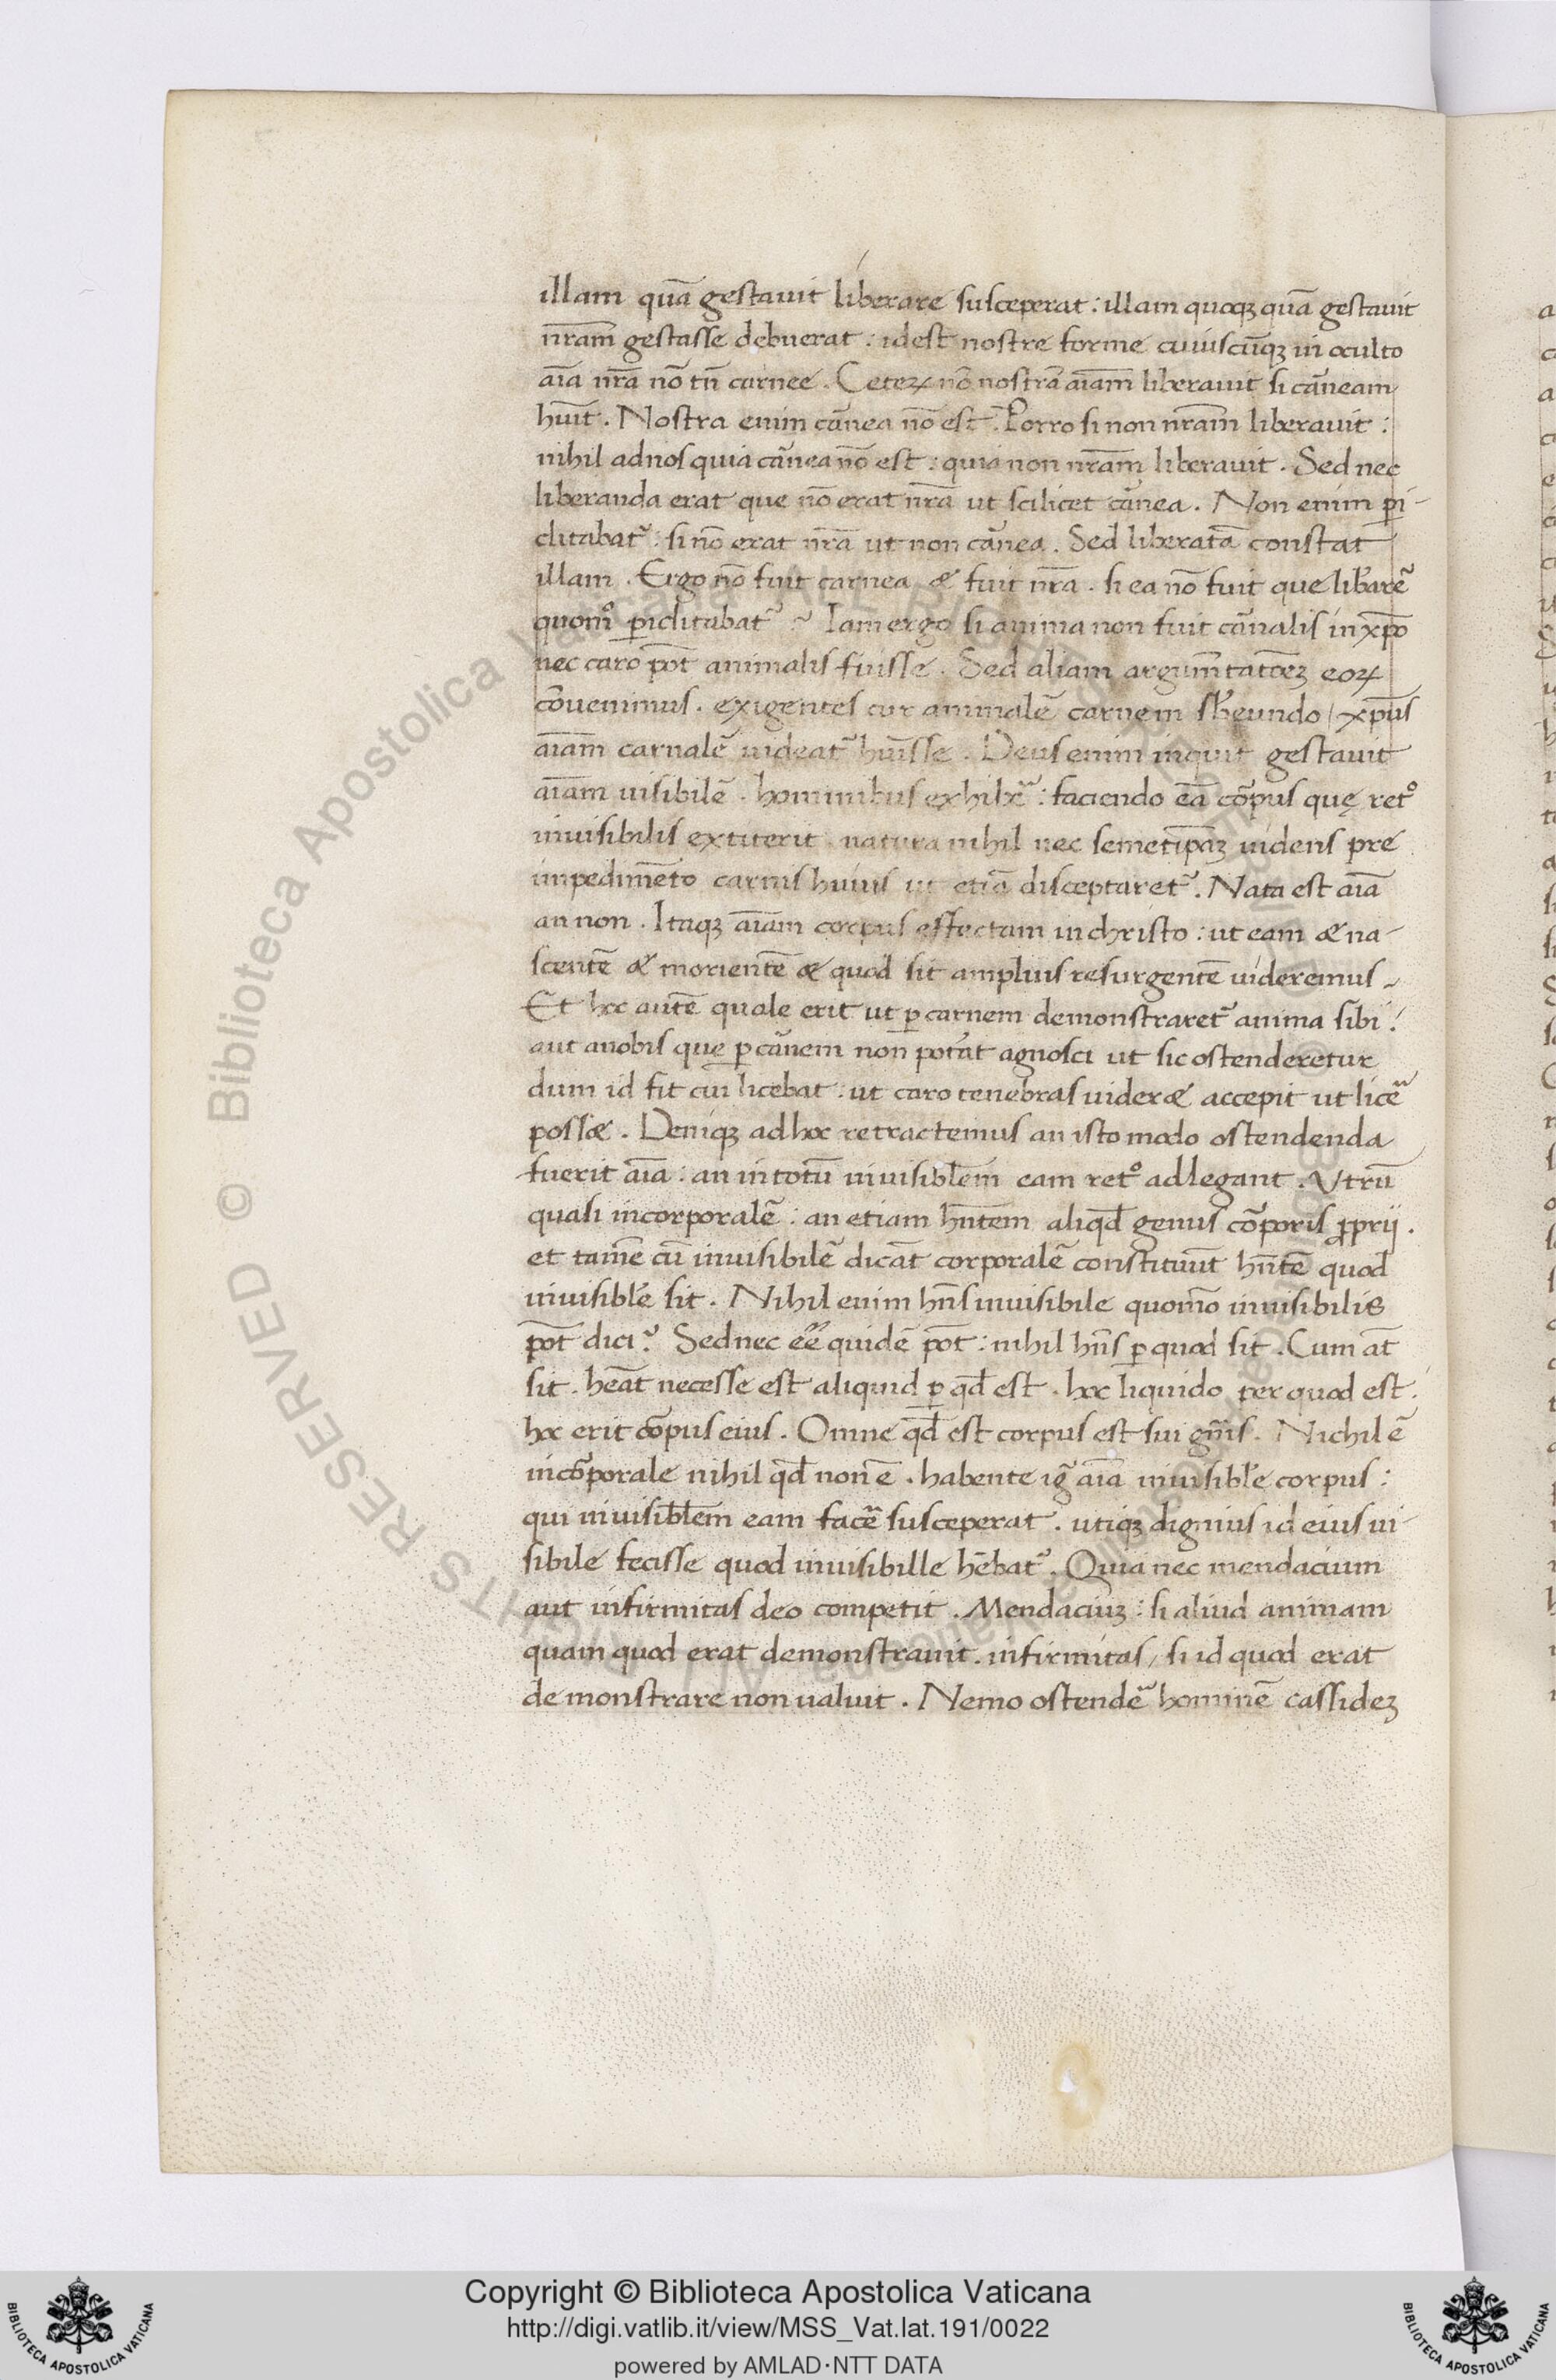 illam quā gestauit liberare susceperat : illam quoqꝫ quā gestauit
nr̄am gestasse debuerat : idest nostre forme cuiuscūqꝫ in oculto
aīa nr̄a nō tn̄ carnee . Ceteꝝ nō nostrā aīam liberauit si cārneam
huīt . Nostra enim cārnea nō est . Porro si non nr̄am liberauit :
nihil adnos quia cārnea nō est : quia non nr̄am liberauit . Sed nec
liberanda erat que nō erat nr̄a ut scilicet cārnea . Non enim ꝑi-
clitabat᷑ : si nō erat nr̄a ut non cārnea . Sed liberatā constat
illam . Ergo nō fuit carnea & fuit nr̄a . si ea nō fuit que libarē
quomͦ ꝑiclitabat᷑ Iam ergo si anima non fuit cārnalis in xp̄o
nec caro pōt animalis fuisse . Sed aliam argumn̄tatōeꝫ eoꝝ
cōuenimus . exigentes cur animalē carnem sbeundo / xp̄us
aīam carnalē uideat᷑ huīsse . Deus enim inquit gestauit
aīam uisibilē . hominibus exhibr̄e : faciendo eā cōrpus quę retͦ
inuisibilis extiterit natura nihil nec semetip̄aꝫ uidens pre
impedimēto carnis huius ut etiā disceptaret᷑ . Nata est aīa
an non . Itaqꝫ aīam corpus effectam in christo : ut eam & na-
scentē & morientē & quod sit amplius resurgentē uideremus
Et hoc autē quale erit ut ꝑ carnem demonstraret᷑ anima sibi :
aut anobis quę ꝑ cārnem non potāt agnosci ut sic ostenderetur
dum id fit cui licebat : ut caro tenebras uider& accepit ut licē
poss& . Deniqꝫ ad hoc retractemus an isto modo ostendenda
fuerit aīa : an in totū inuisiblēm eam retͦ adlegant . Vtrū
quasi incorporalē : an etiam hn̄tem aliqd̄ genus cōrporis ꝓprij .
et tamē cū inuisibilē dicāt corporalē constituūt hn̄tē quod
inuisiblē sit . Nihil enim hn̄s inuisibile quomō inuisibilis
pōt dici ? Sed nec eē quidē pōt : nihil hn̄s ꝑ quod sit . Cum āt
sit . heāt necesse est aliquid ꝑ qd̄ est . hoc liquido per quod est .
hoc erit cōrpus eius . Omne qd̄ est corpus est sui gn̄is . Nichil ē
incōrporale nihil qd̄ non ē . habente ig̃ aīa inuisiblē corpus :
qui inuisiblēm eam facē susceperat . utiqꝫ dignius id eius ui-
sibile fecisse quod inuisibille hēbat᷑ . Quia nec mendacium
aut infirmitas deo competit . Mendaciuꝫ : si aliud animam
quam quod erat demonstrauit . infirmitas / si id quod erat
demonstrare non ualuit . Nemo ostendē hominē cassideꝫ
Copyright © Biblioteca Apostolica Vaticana
http://digi.vatlib.it/view/MSS_Vat.lat.191/0022
powered by AMLAD·NTT DATA